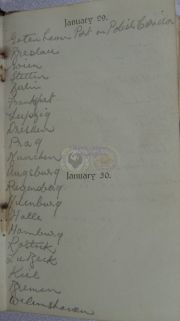 January 29.
Gotenhaven Port on Polish Corridor
Breslau
Wien
Stettin
Berlin
Frankfurt
Leipzig
Dresden
Prag
Munchen
Augsburg
January 30.
Regensberg
Nurnburg
Halle
Hamburg
Rostock
Lubeck
Kiel
Bremen
Wilemshaven